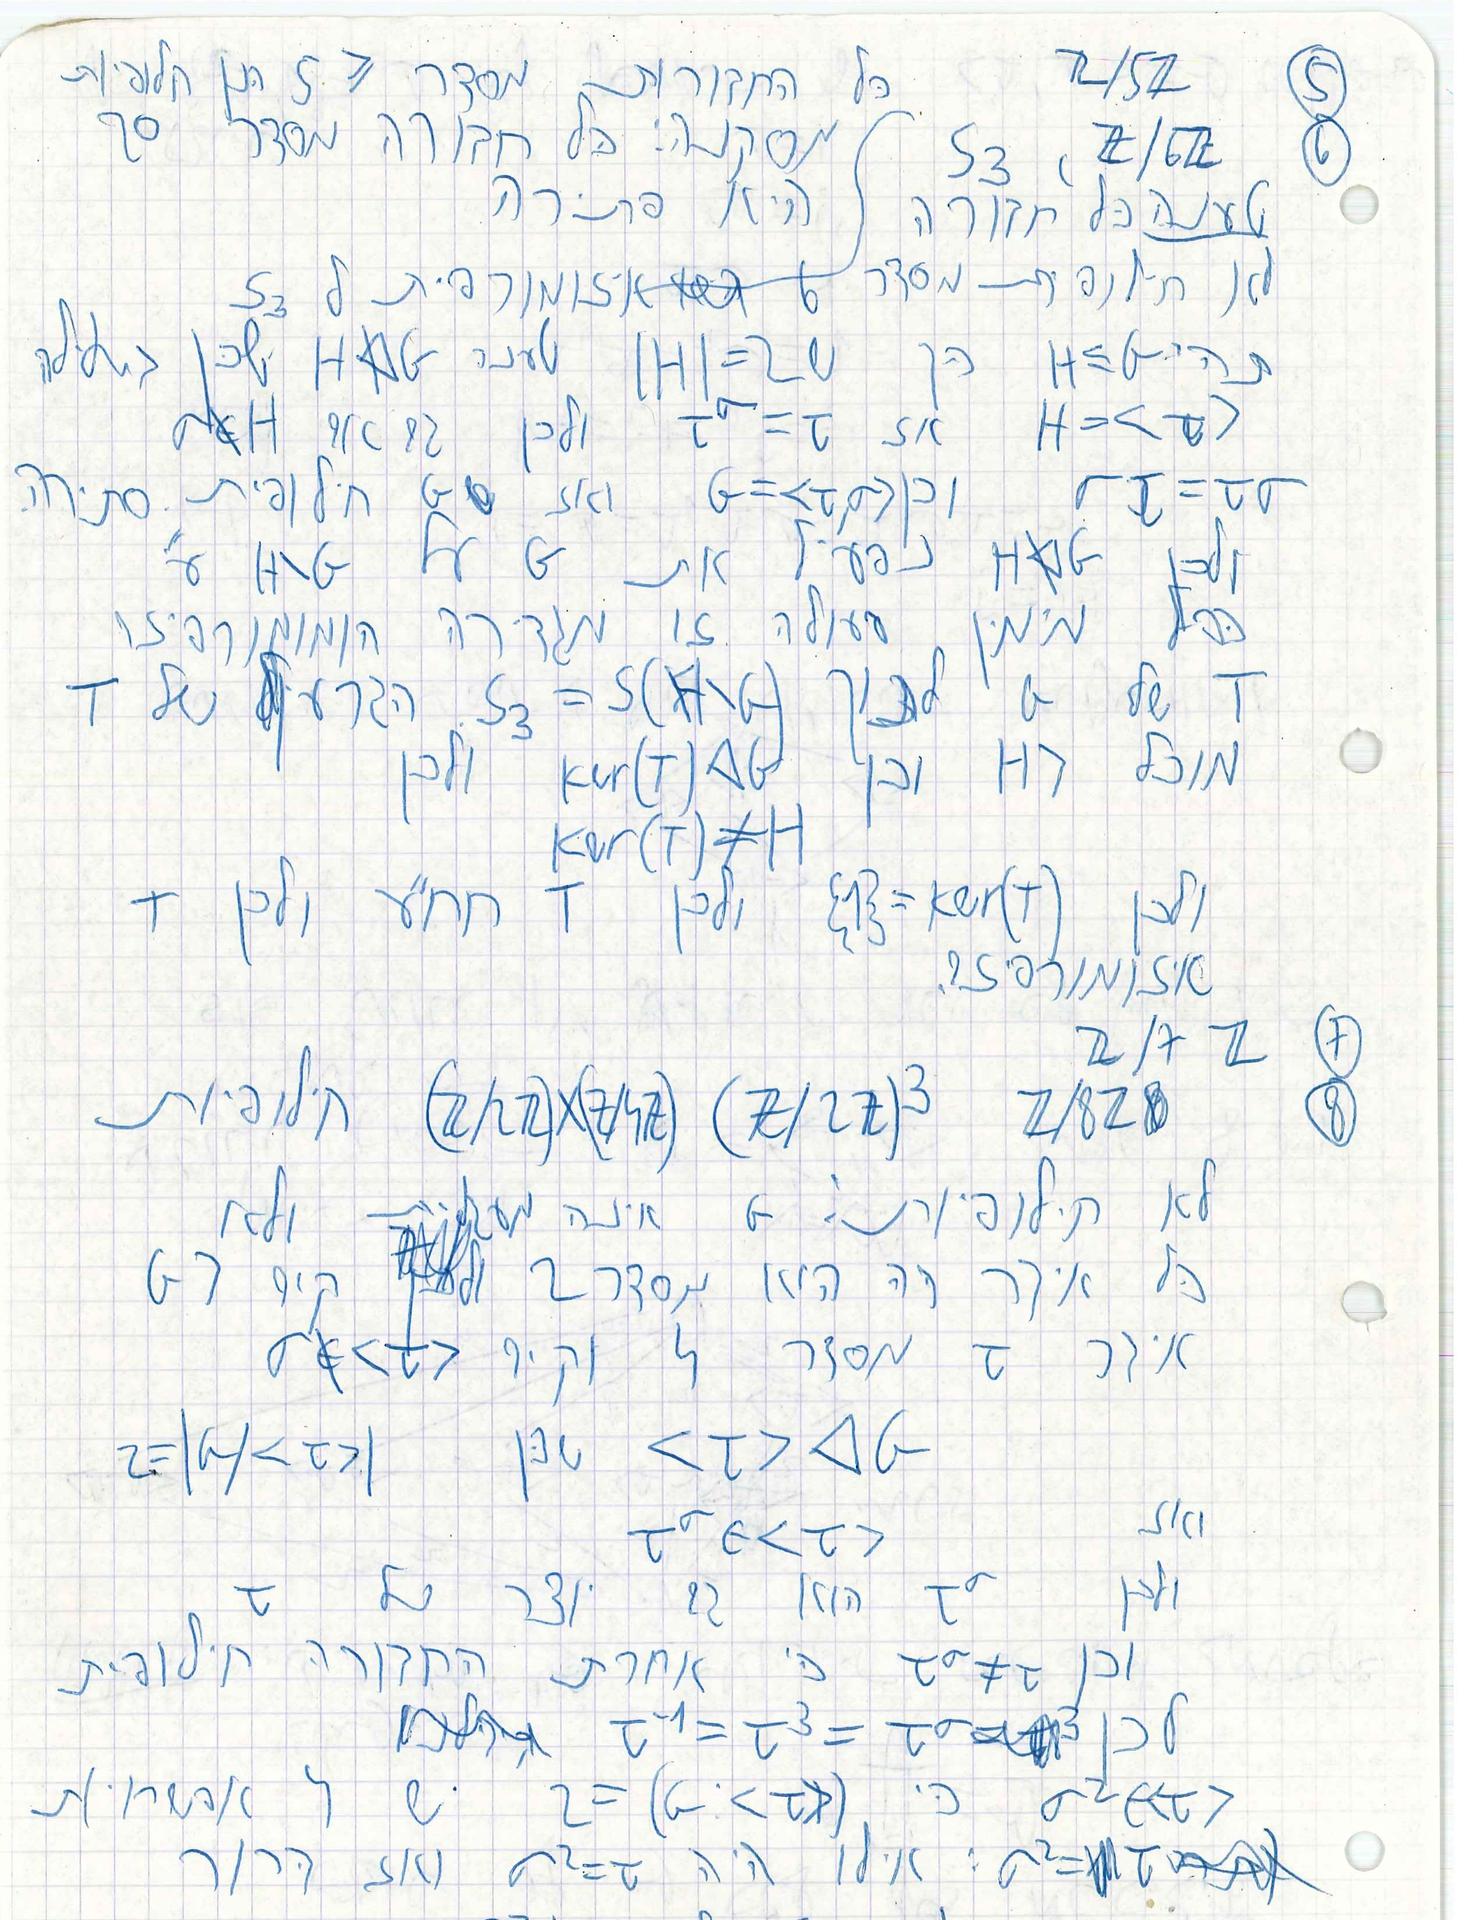 ⑤ Z/5Z כל החבורות מסדר ≤ 5 הן חלופיות
⑥ Z/6Z , S₃ מסקנה: כל חבורה מסדר 59
טענה כל חבורה היא פתירה
לא חילופית מסדר 6 איזומורפית ל S₃
תהי H≤G כך ש |H|=2 טענה H⋬G שכן בשלילה
H=<τ> אז τ^σ=τ ולכן גם אם σ∉H
στ=τσ וכן G=<τ,σ> ואז G חילופית סתירה.
ולכן H⋬G נפעיל את G על H\G ע"י
כפל מימין פעולה זו מגדירה הומומורפיזם
T של G לתוך S(H\G) = S₃. הגרעין של T
מוכל ב H וכן ker(T)⊲G ולכן
ker(T)≠H
ולכן ker(T)={1} ולכן T חח"ע ולכן T
איזומורפיזם.
⑦ Z/7Z
⑧ Z/8Z (Z/2Z)³ (Z/2Z)×(Z/4Z) חילופיות
לא חילופיות: G אינה מעגלית ולא
כל איבר בה הוא מסדר 2 ולכן קיים ב G
איבר τ מסדר 4 וקיים σ∉<τ>
<τ>⊲G שכן |G/<τ>|=2
ואז τ^σ∈<τ>
ולכן τ^σ הוא גם יוצר של τ
וכן τ^σ≠τ כי אחרת החבורה חילופית
לכן τ^σ = τ³ = τ⁻¹
σ²∈<τ> כי (G:<τ>)=2 יש 4 אפשרויות
σ²=τ : אילו היה σ²=τ ואז ברור